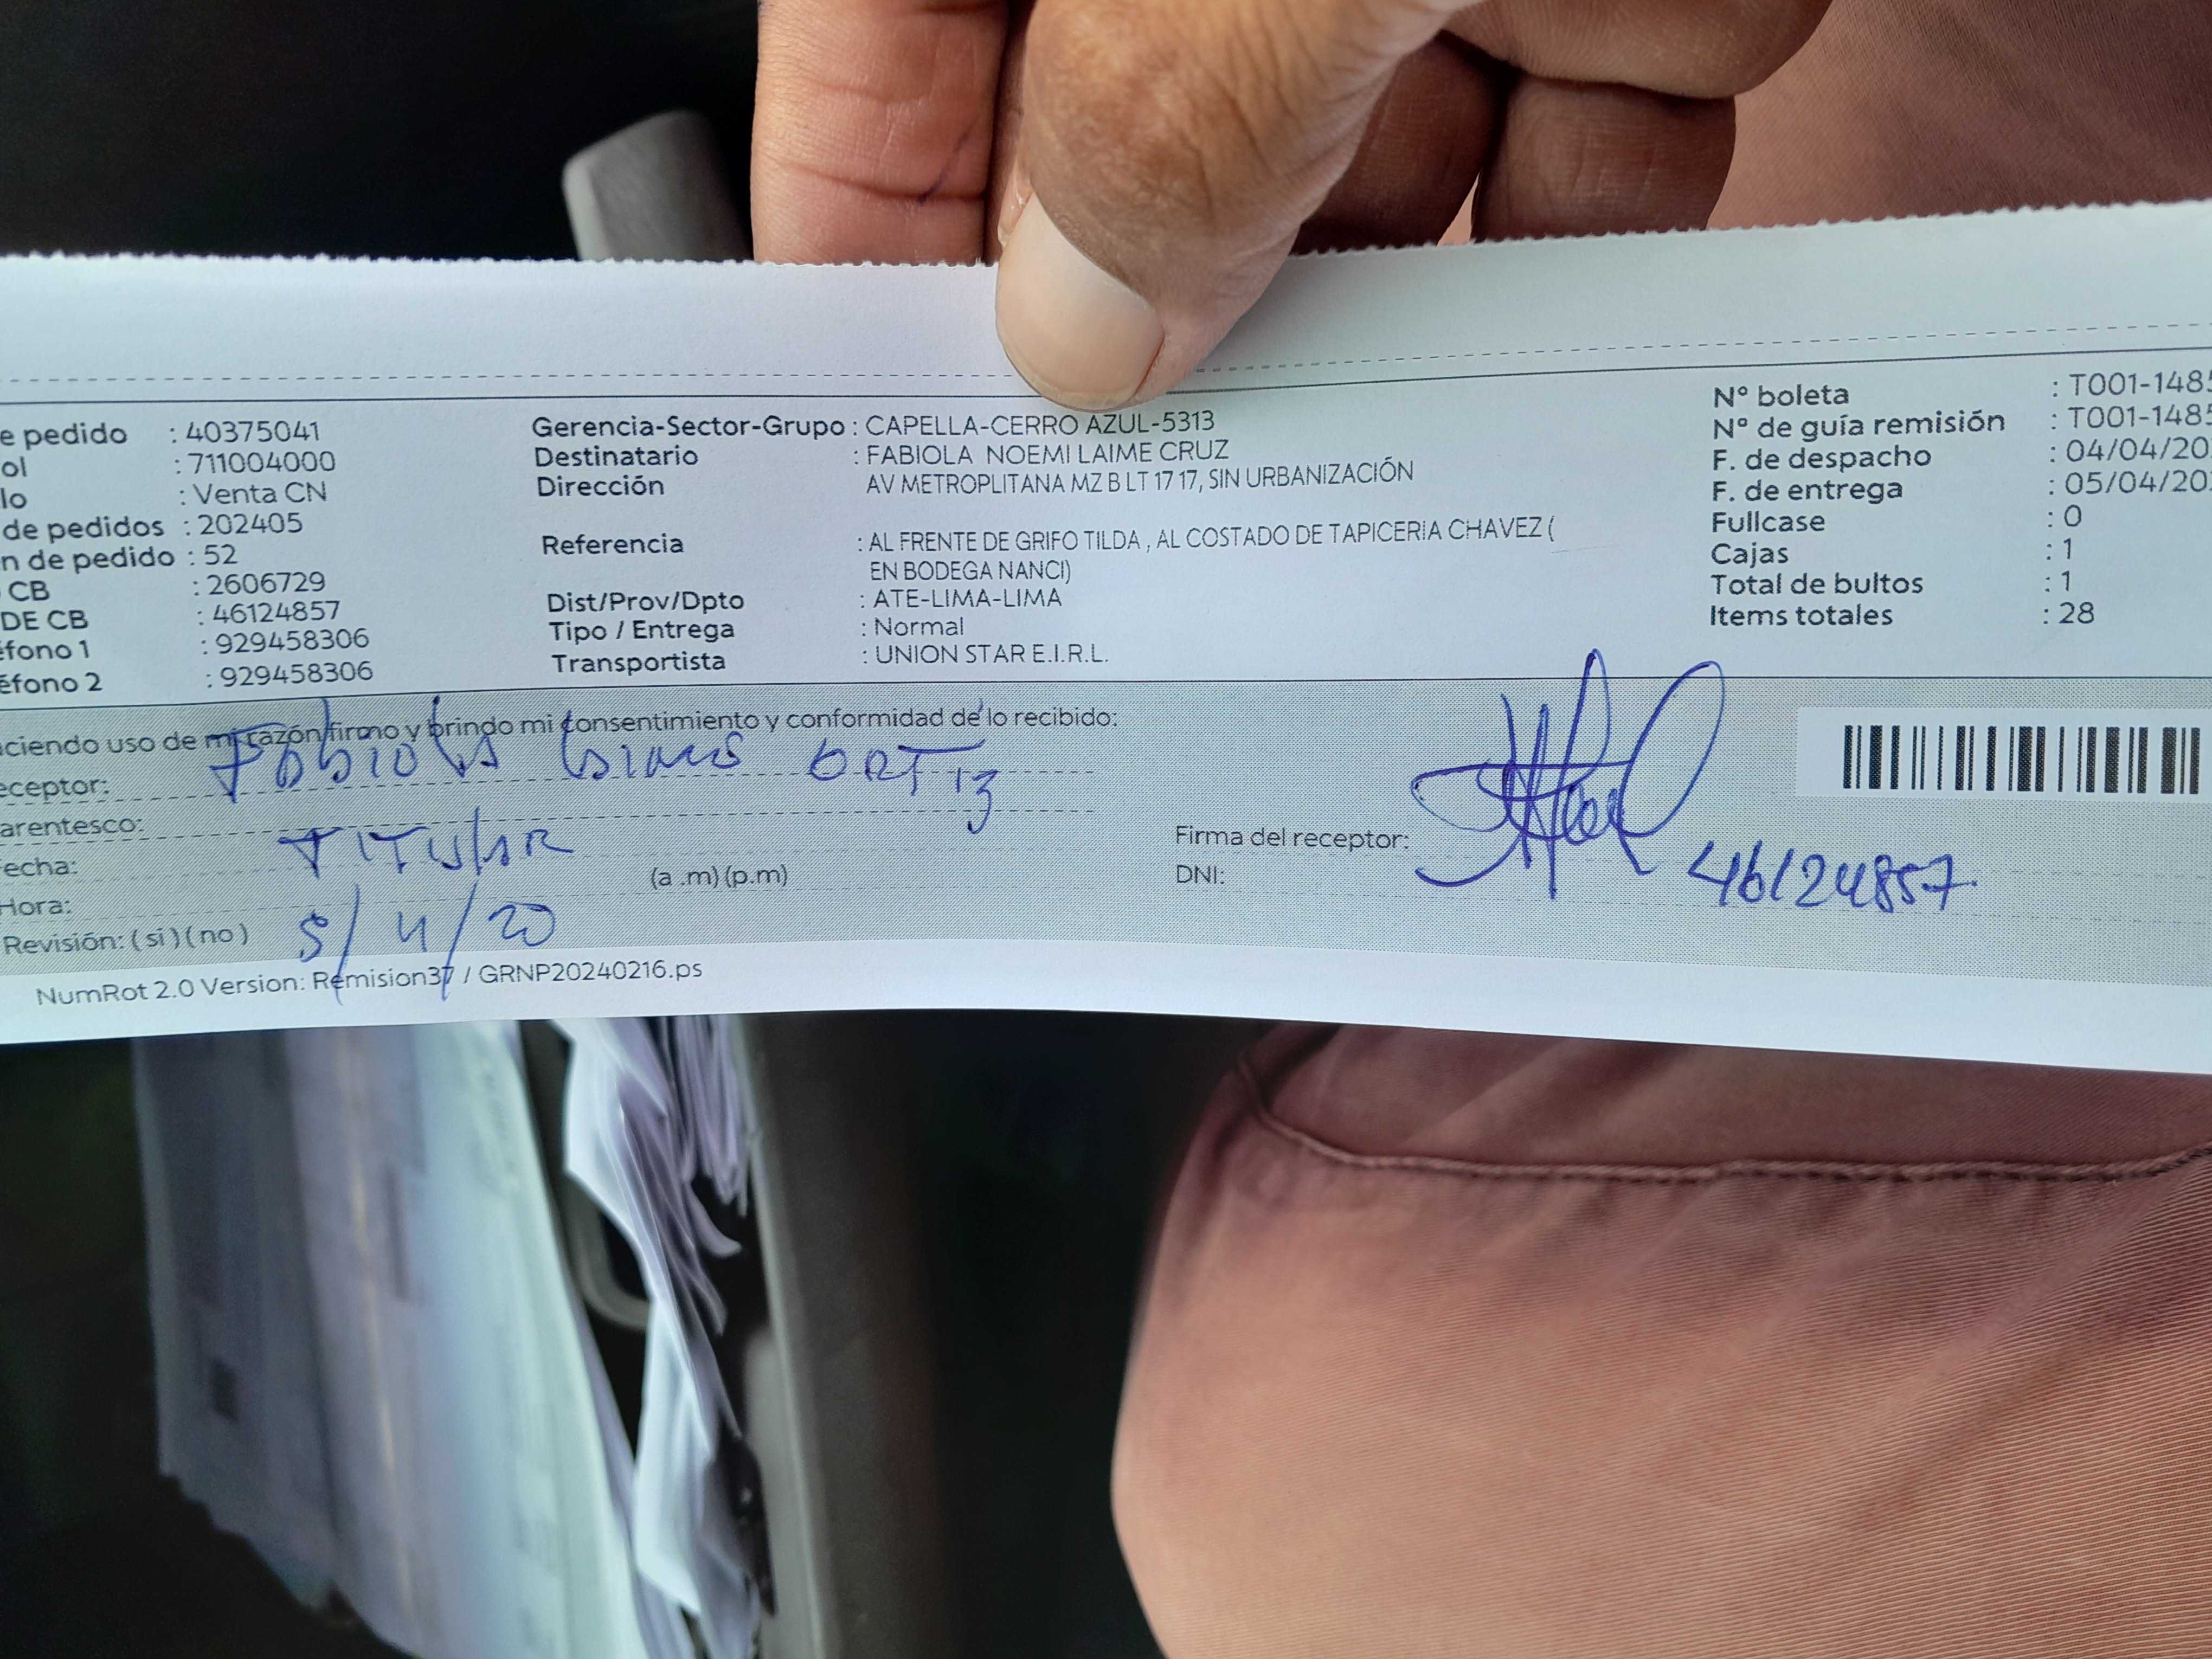 e pedido : 40375041
ol : 711004000
lo : Venta CN
de pedidos : 202405
n de pedido : 52
CB : 2606729
DE CB : 46124857
éfono 1 : 929458306
éfono 2 : 929458306
Gerencia-Sector-Grupo : CAPELLA-CERRO AZUL-5313
Destinatario : FABIOLA NOEMI LAIME CRUZ
Dirección AV METROPLITANA MZ B LT 17 17, SIN URBANIZACIÓN
Referencia : AL FRENTE DE GRIFO TILDA , AL COSTADO DE TAPICERIA CHAVEZ (
EN BODEGA NANCI)
Dist/Prov/Dpto : ATE-LIMA-LIMA
Tipo / Entrega : Normal
Transportista : UNION STAR E.I.R.L.
Nº boleta : T001-1485
Nº de guía remisión : T001-1485
F. de despacho : 04/04/20
F. de entrega : 05/04/20
Fullcase : 0
Cajas : 1
Total de bultos : 1
Items totales : 28
ciendo uso de mi razón firmo y brindo mi consentimiento y conformidad de lo recibido:
eceptor: Fabiola ORTIZ
arentesco: TITULAR
echa: 5/4/20
Hora: (a .m) (p.m)
Revisión: ( si ) ( no )
Firma del receptor:
DNI: 46124857
NumRot 2.0 Version: Remision37 / GRNP20240216.ps